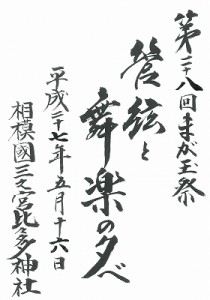 第二十八回まが玉祭
管絃と
舞楽の夕べ
平成二十七年五月十六日
相模國三之宮比々多神社